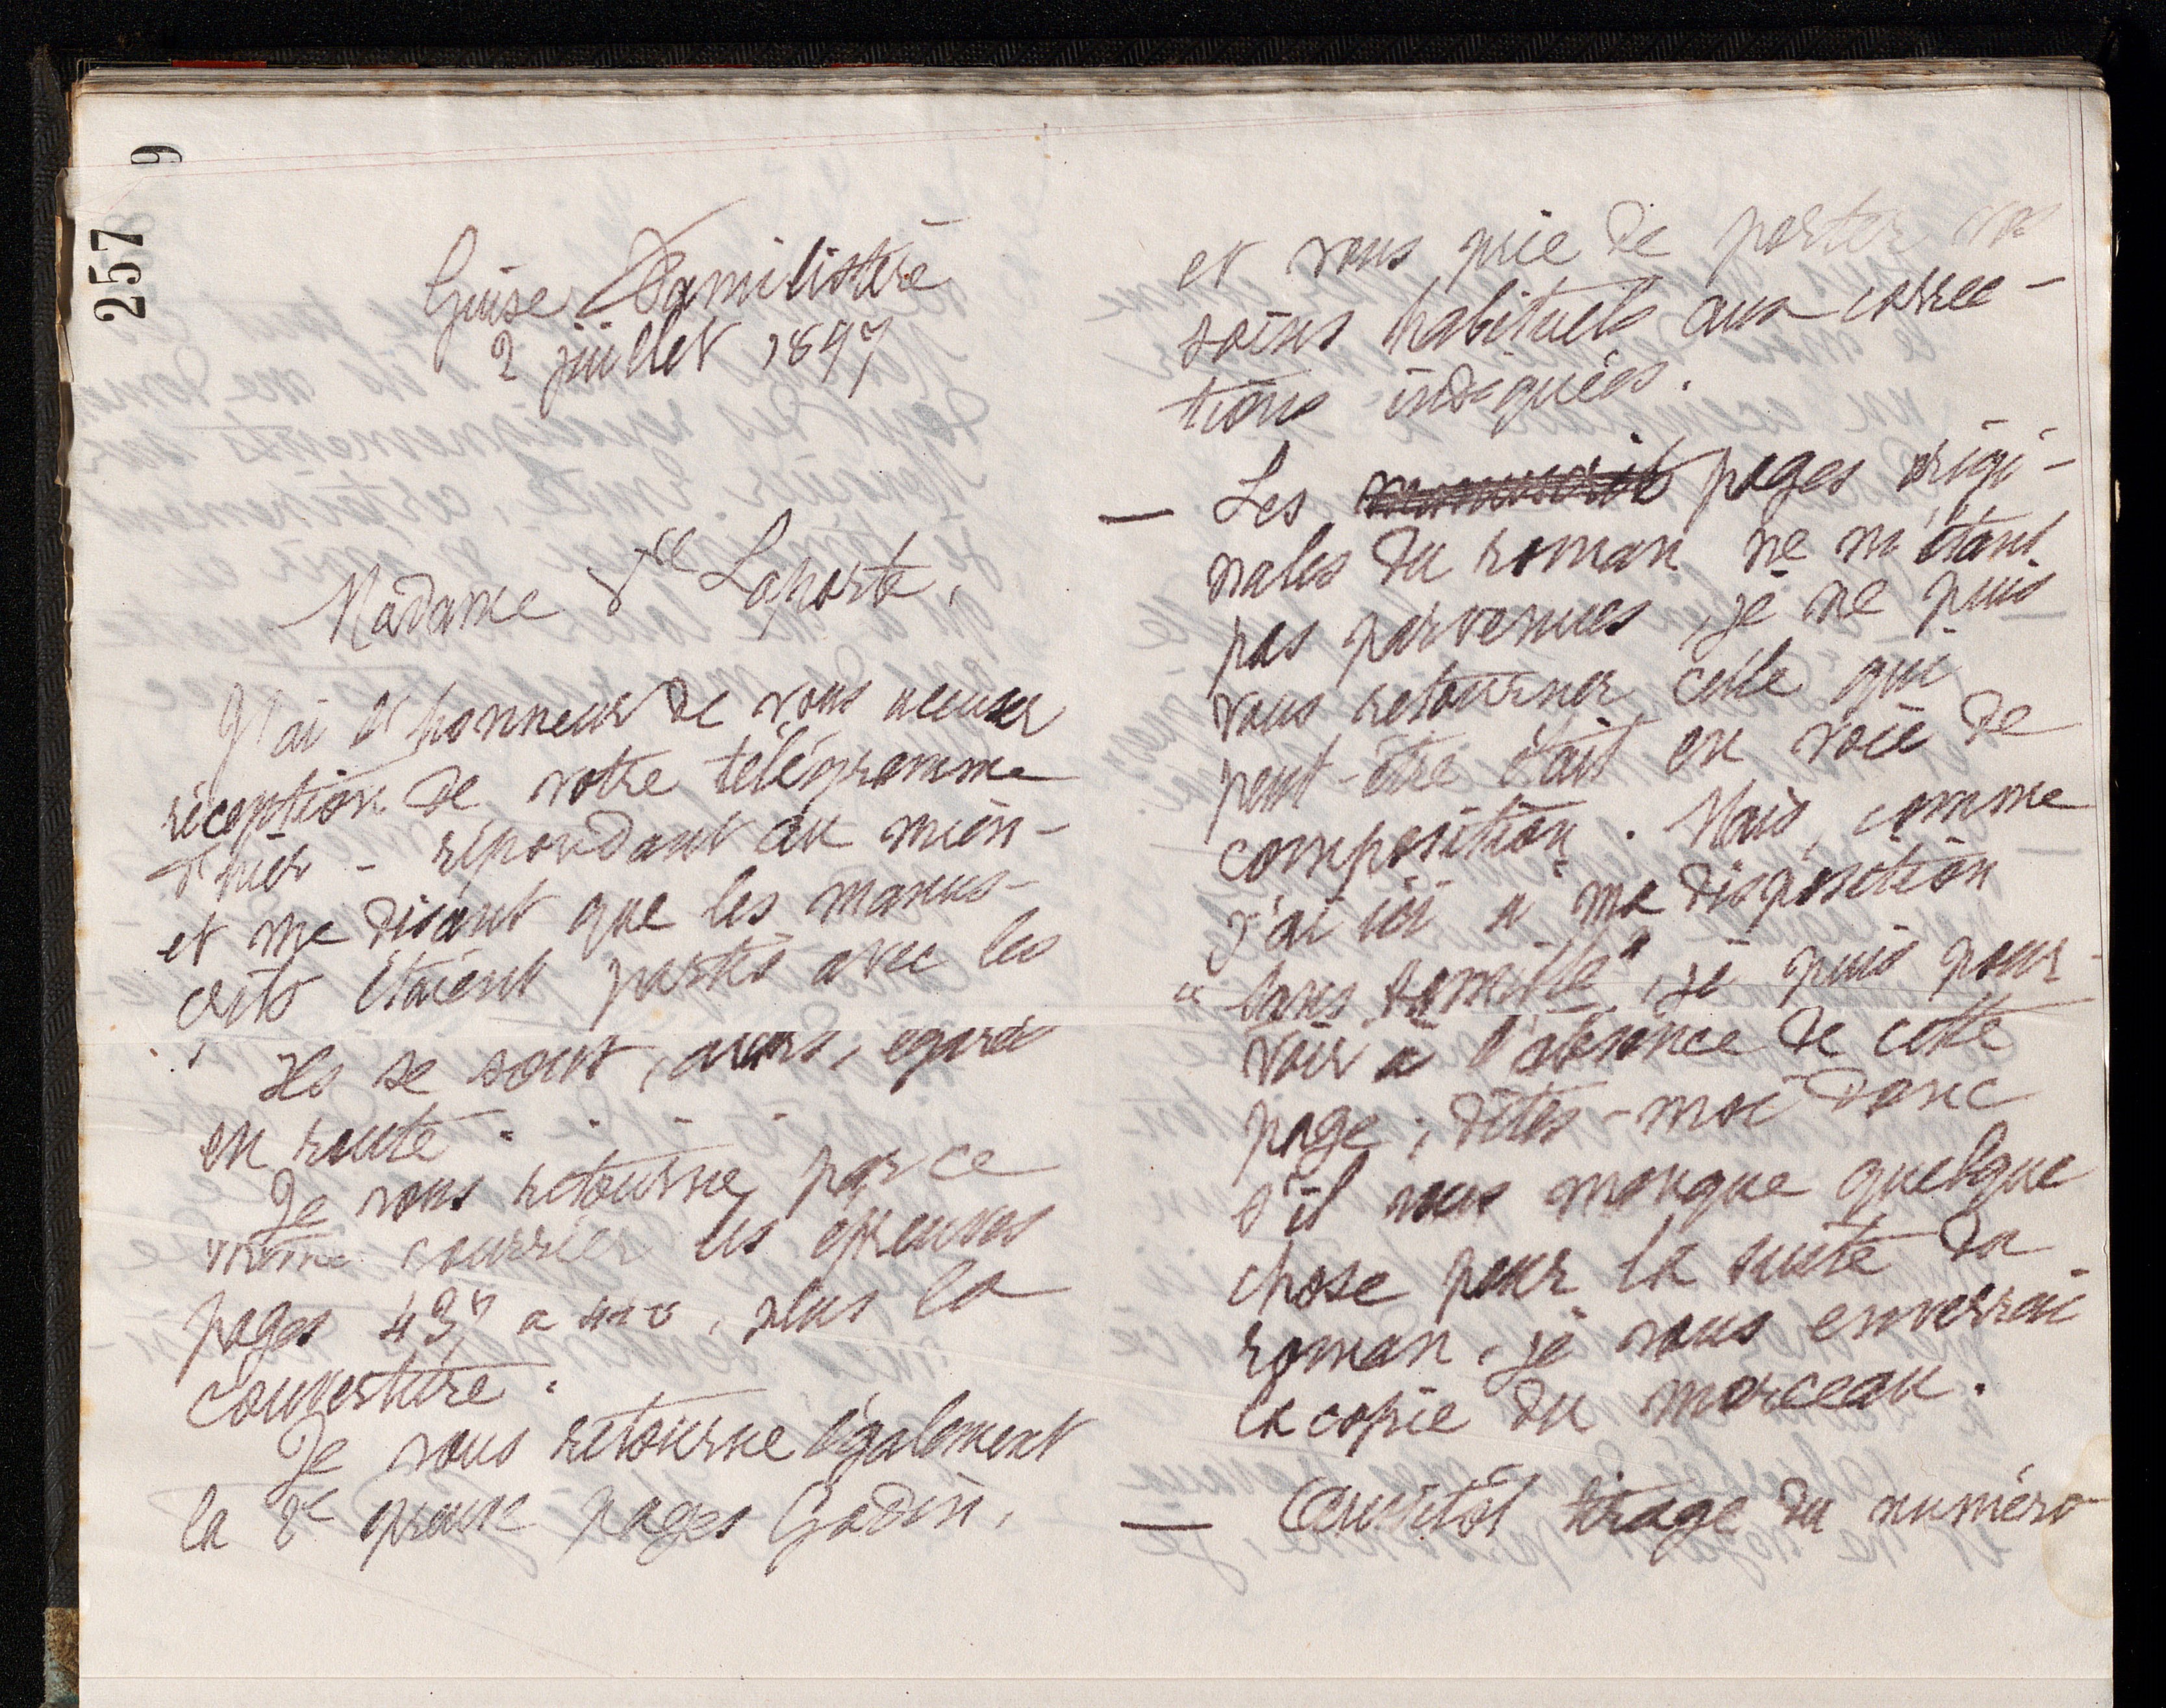 257
9
Guise Familistère
2 juillet 1897
Madame Vve Laporte,
J'ai l'honneur de vous accuser
réception de votre télégramme
d'hier - répondant au mien -
et me disant que les manus-
crits étaient partis avec les
Ils se sont, alors, égarés
en route.
Je vous retourne par ce
même courrier les épreuves
pages 437 à , plus la
couverture.
Je vous retourne également
la 2e épreuve pages Godin,
et vous prie de porter vos
soins habituels aux correc-
tions indiquées.
— Les manuscrits pages origi-
nales du roman ne m'étant
pas parvenues, je ne puis
vous retourner celle qui
peut-être était en voie de
composition. Mais, comme
j'ai ici à ma disposition
"Sans famille", je puis pour-
voir à l'absence de cette
page ; dites-moi donc
s'il vous manque quelque
chose pour la suite du
roman, je vous enverrai
la copie du morceau.
— Aussitôt tirage du numéro